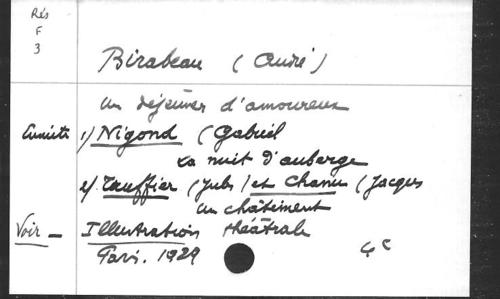 Rés
F
3
Birabeau (André)
Un déjeuner d'amoureux
1) Nigond (Gabriel
La nuit d'auberge
2) Tauffier (Jules) et Chanu (Jacques
Un châtiment
Voir - Illustration théâtrale
Paris. 1929